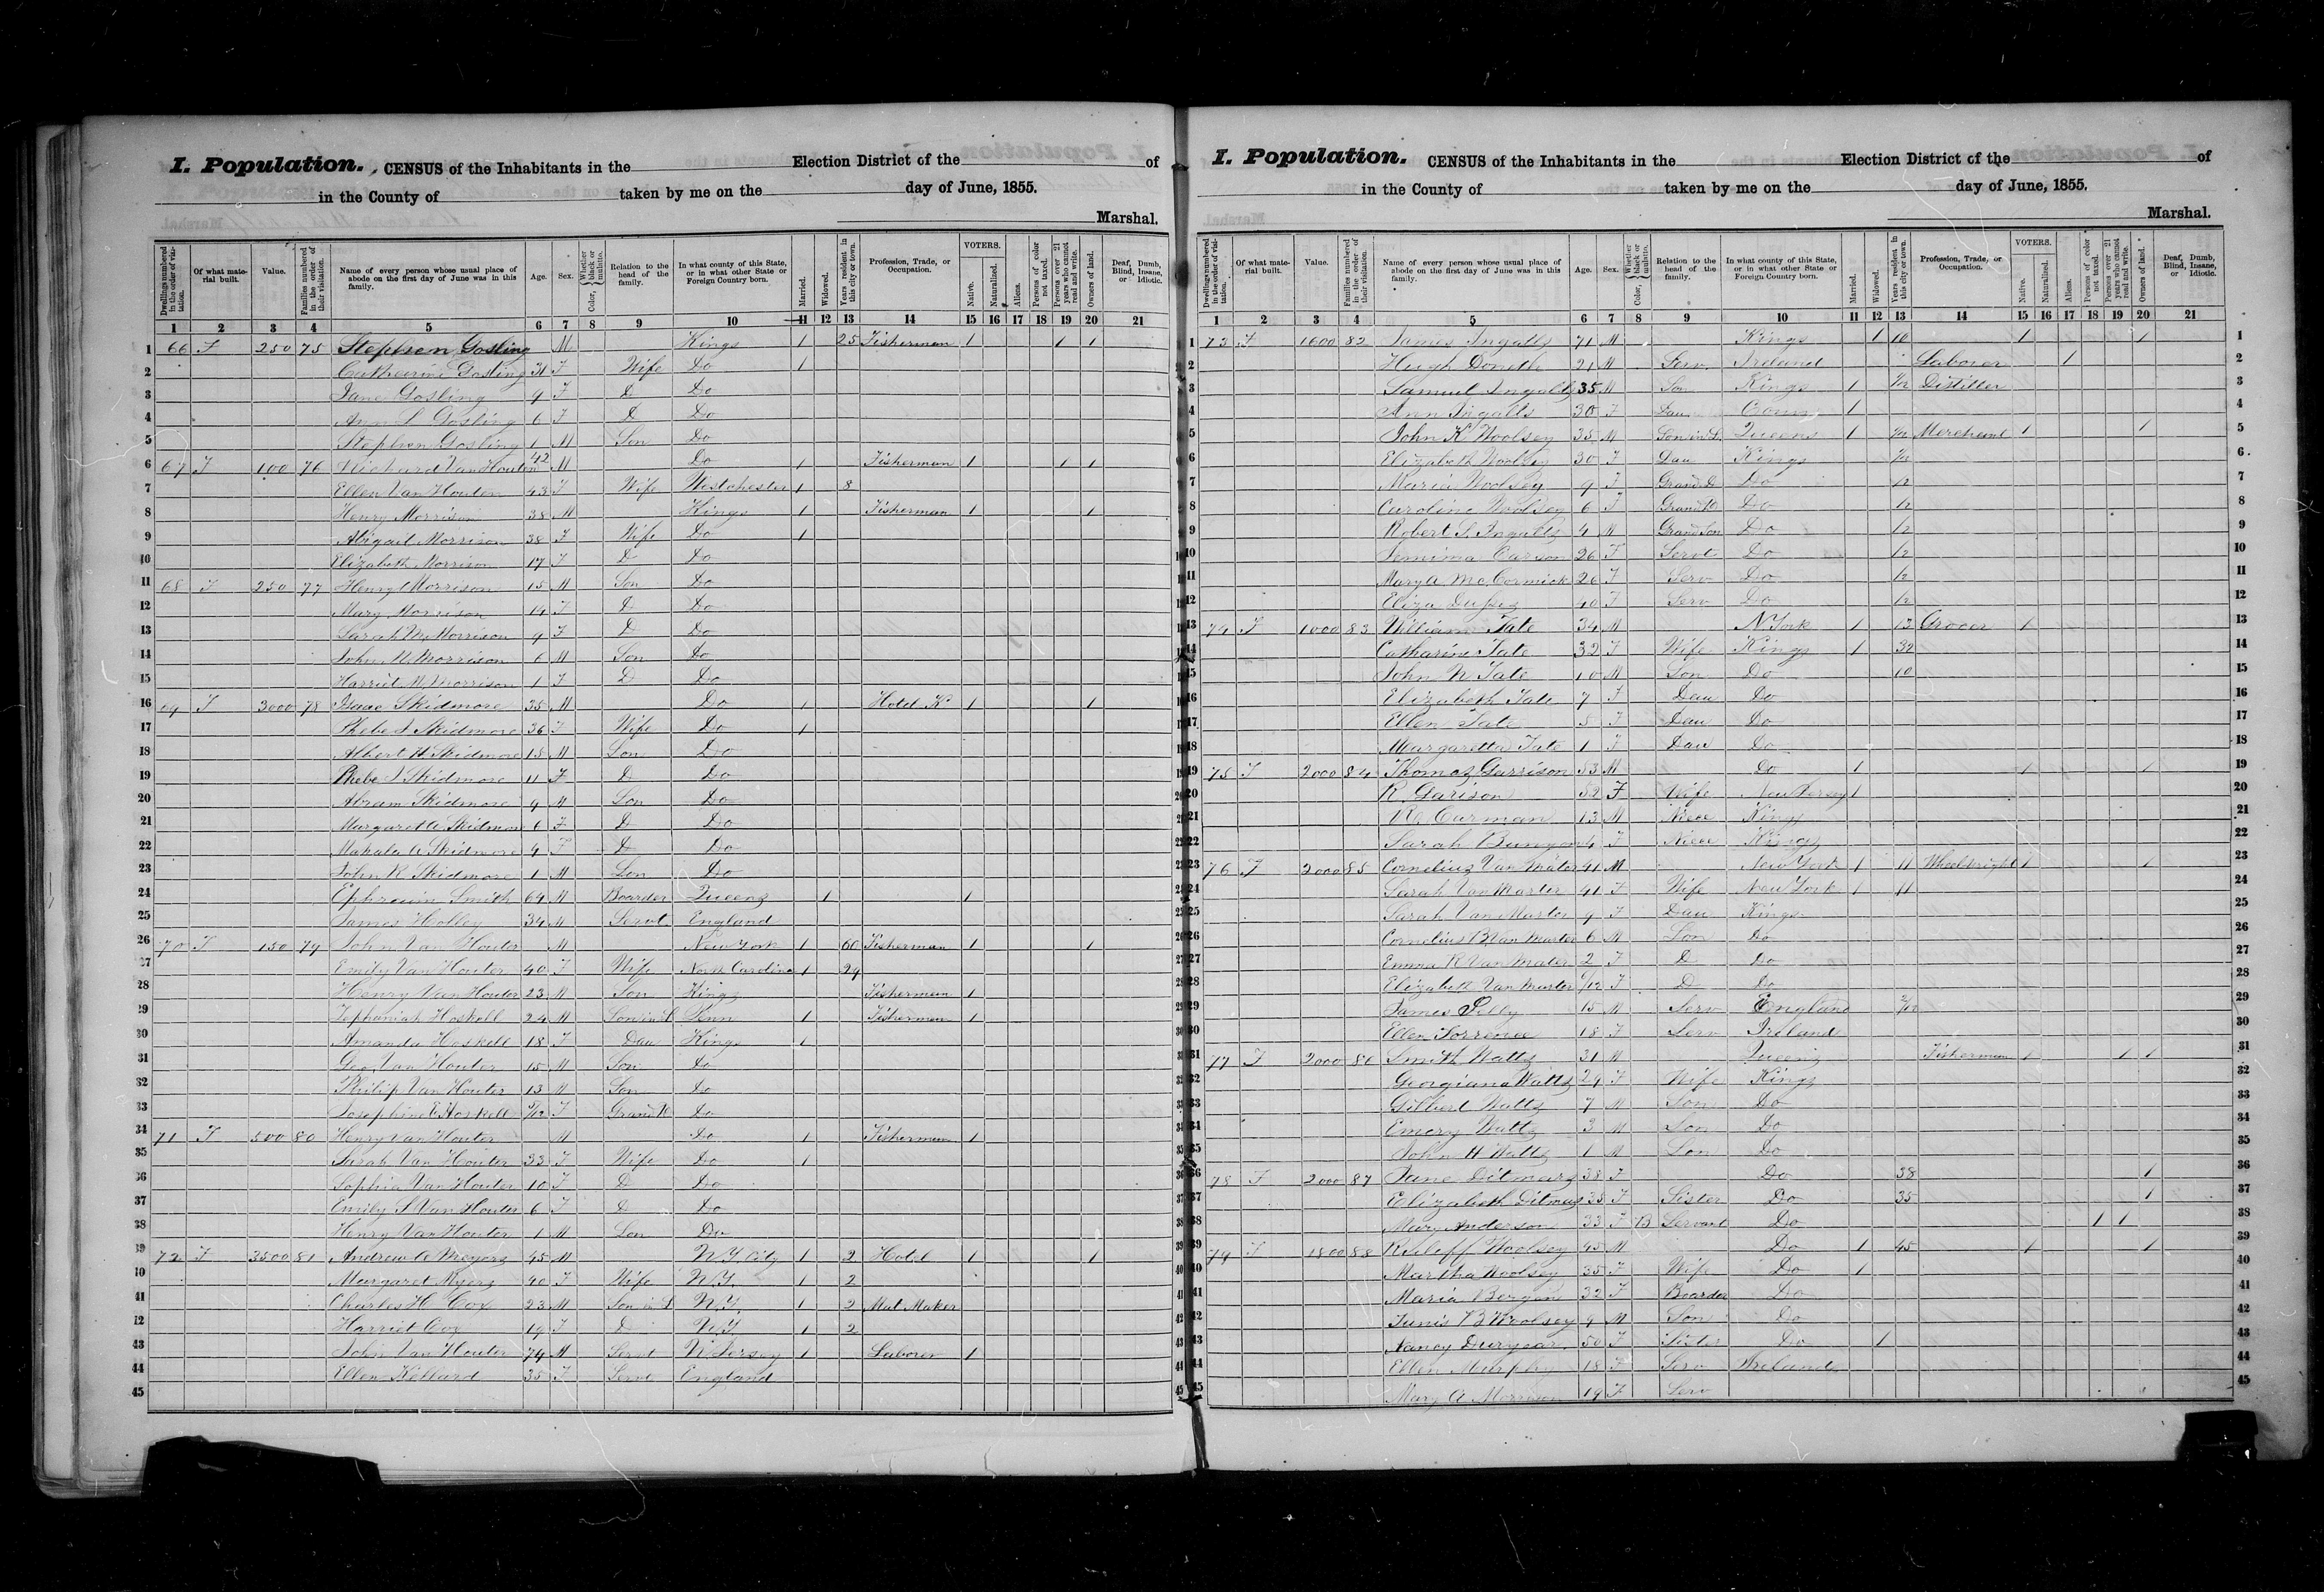 I. Population. CENSUS of the Inhabitants in the Election District of the of
in the County of taken by me on the day of June, 1855.
Marshal.
Dwellings numbered in the order of visitation. Of what material built. Value. Families numbered in the order of their visitation. Name of every person whose usual place of abode on the first day of June was in this family. Age. Sex. Color, Whether black or mulatto. Relation to the head of the family. In what county of this State, or in what other State or Foreign Country born. Married. Widowed. Years resident in this city or town. Profession, Trade, or Occupation. VOTERS. Native. Naturalized. Aliens. Persons of color not taxed. Persons over 21 years who cannot read and write. Owners of land. Deaf, Dumb, Blind, Insane, or Idiotic.
1 2 3 4 5 6 7 8 9 10 11 12 13 14 15 16 17 18 19 20 21
1 66 F 250 75 Stephen Gosling M Kings 1 25 Fisherman 1 1 1
2 Catharine Gosling 31 F Wife Do 1
3 Jane Gosling 9 F D Do
4 Ann S Gosling 6 F D Do
5 Stephen Gosling 1 M Son Do
6 67 F 100 76 Richard Van Houten 42 M Do 1 Fisherman 1 1 1
7 Ellen Van Houten 43 F Wife Westchester 1 8
8 Henry Morrison 38 M Kings 1 Fisherman 1 1
9 Abigail Morrison 38 F Wife Do 1
10 Elizabeth Morrison 17 F D Do
11 68 F 250 77 Henry Morrison 15 M Son Do
12 Mary Morrison 14 F D Do
13 Sarah M Morrison 9 F D Do
14 John M Morrison 6 M Son Do
15 Harriet M Morrison 1 F D Do
16 69 F 3000 78 Isaac Skidmore 35 M Do 1 Hotel Kr 1 1
17 Phebe S Skidmore 36 F Wife Do 1
18 Albert H Skidmore 15 M Son Do
19 Phebe S Skidmore 11 F D Do
20 Abram Skidmore 9 M Son Do
21 Margaret A Skidmore 6 F D Do
22 Mahala A Skidmore 4 F D Do
23 John R Skidmore 1 M Son Do
24 Ephraim Smith 64 M Boarder Queens 1 1
25 James Holley 34 M Servt England
26 70 F 150 79 John Van Houter M New York 1 60 Fisherman 1 1
27 Emily Van Houter 40 F Wife North Carolina 1 24
28 Henry Van Houter 23 M Son Kings Fisherman 1
29 Zephaniah Hoskell 24 M Son in L Penn 1 Fisherman 1
30 Amanda Hoskell 18 F Dau Kings 1
31 Geo Van Houter 15 M Son Do
32 Philip Van Houter 13 M Son Do
33 Josephine E Hoskell 5/12 F Grand D Do
34 71 F 500 80 Henry Van Houter M Do 1 Fisherman 1
35 Sarah Van Houter 33 F Wife Do 1
36 Sophia Van Houter 10 F D Do
37 Emily S Van Houter 6 F D Do
38 Henry Van Houter 1 M Son Do
39 72 F 3500 81 Andrew A Meyers 45 M N.Y City 1 2 Hotel 1 1
40 Margaret Myers 40 F Wife N.Y. 1 2
41 Charles H Cox 23 M Son in L N.Y. 1 2 Mat Maker
42 Harriet Cox 19 F D N.Y. 1 2
43 John Van Houter 74 M Servt N. Jersey 1 Laborer 1
44 Ellen Kellard 35 F Servt England
45
I. Population. CENSUS of the Inhabitants in the Election District of the of
in the County of taken by me on the day of June, 1855.
Marshal.
Dwellings numbered in the order of visitation. Of what material built. Value. Families numbered in the order of their visitation. Name of every person whose usual place of abode on the first day of June was in this family. Age. Sex. Color, Whether black or mulatto. Relation to the head of the family. In what county of this State, or in what other State or Foreign Country born. Married. Widowed. Years resident in this city or town. Profession, Trade, or Occupation. VOTERS. Native. Naturalized. Aliens. Persons of color not taxed. Persons over 21 years who cannot read and write. Owners of land. Deaf, Dumb, Blind, Insane, or Idiotic.
1 2 3 4 5 6 7 8 9 10 11 12 13 14 15 16 17 18 19 20 21
1 73 F 1600 82 James Ingalls 71 M Kings 1 10 1 1
2 Hugh 21 M Serv Ireland Laborer 1
3 Samuel Ingalls 35 M Son Kings 1 1/2 Distiller
4 Ann Ingalls 30 F Dau Conn 1
5 John K Woolsey 35 M Son in L Queens 1 1/2 Merchant 1 1
6 Elizabeth Woolsey 30 F Dau Kings 1/2
7 Maria Woolsey 9 F Grand D Do 1/2
8 Caroline Woolsey 6 F Grand D Do 1/2
9 Robert S Ingalls 4 M Grand Son Do 1/2
10 Jemima Carson 26 F Servt Do 1/2
11 Mary A McCormick 26 F Serv Do 1/2
12 Eliza 40 F Serv Do 1/2
13 74 F 1000 83 William Tate 34 M N York 1 13 Grocer 1
14 Catharine Tate 32 F Wife Kings 1 32
15 John N Tate 10 M Son Do 10
16 Elizabeth Tate 7 F Dau Do
17 Ellen Tate 5 F Dau Do
18 Margaretta Tate 1 F Dau Do
19 75 F 2000 84 Thomas Garrison 53 M Do 1 1 1
20 R Garison 52 F Wife New Jersey 1
21 Curman 13 M Niece Kings
22 Sarah Bunyon 4 F Niece Kings
23 76 F 2000 85 Cornelius Van Mater 41 M New York 1 11 Wheelwright 1 1
24 Sarah Van Marter 41 F Wife New York 1 11
25 Sarah Van Marter 9 F Dau Kings
26 Cornelius B Van Marter 6 M Son Do
27 Emma R Van Mater 2 F D Do
28 Elizabeth Van Marter /12 F D Do
29 James Pilly 15 M Serv England 2/12
30 Ellen Torrence 18 F Serv Ireland
31 77 F 2000 86 Smith Watts 31 M Queens Fisherman 1 1 1
32 Georgiana Watts 24 F Wife Kings
33 Gilbert Watts 7 M Son Do
34 Emery Watts 3 M Son Do
35 John H Watts 1 M Son Do
36 78 F 2000 87 Jane Ditmars 38 F Do 38 1
37 Elizabeth Ditmars 35 F Sister Do 35 1
38 Mary Anderson 33 F B Servant Do 1 1
39 79 F 1800 88 Woolsey 45 M Do 1 45 1 1
40 Martha Woolsey 35 F Wife Do 1
41 Maria Bergen 32 F Boarder Do
42 Tunis B Woolsey 9 M Son Do
43 Nancy Duryear 50 F Sister Do 1
44 Ellen Murphy 18 F Serv Ireland
45 Mary A Morrison 19 F Serv